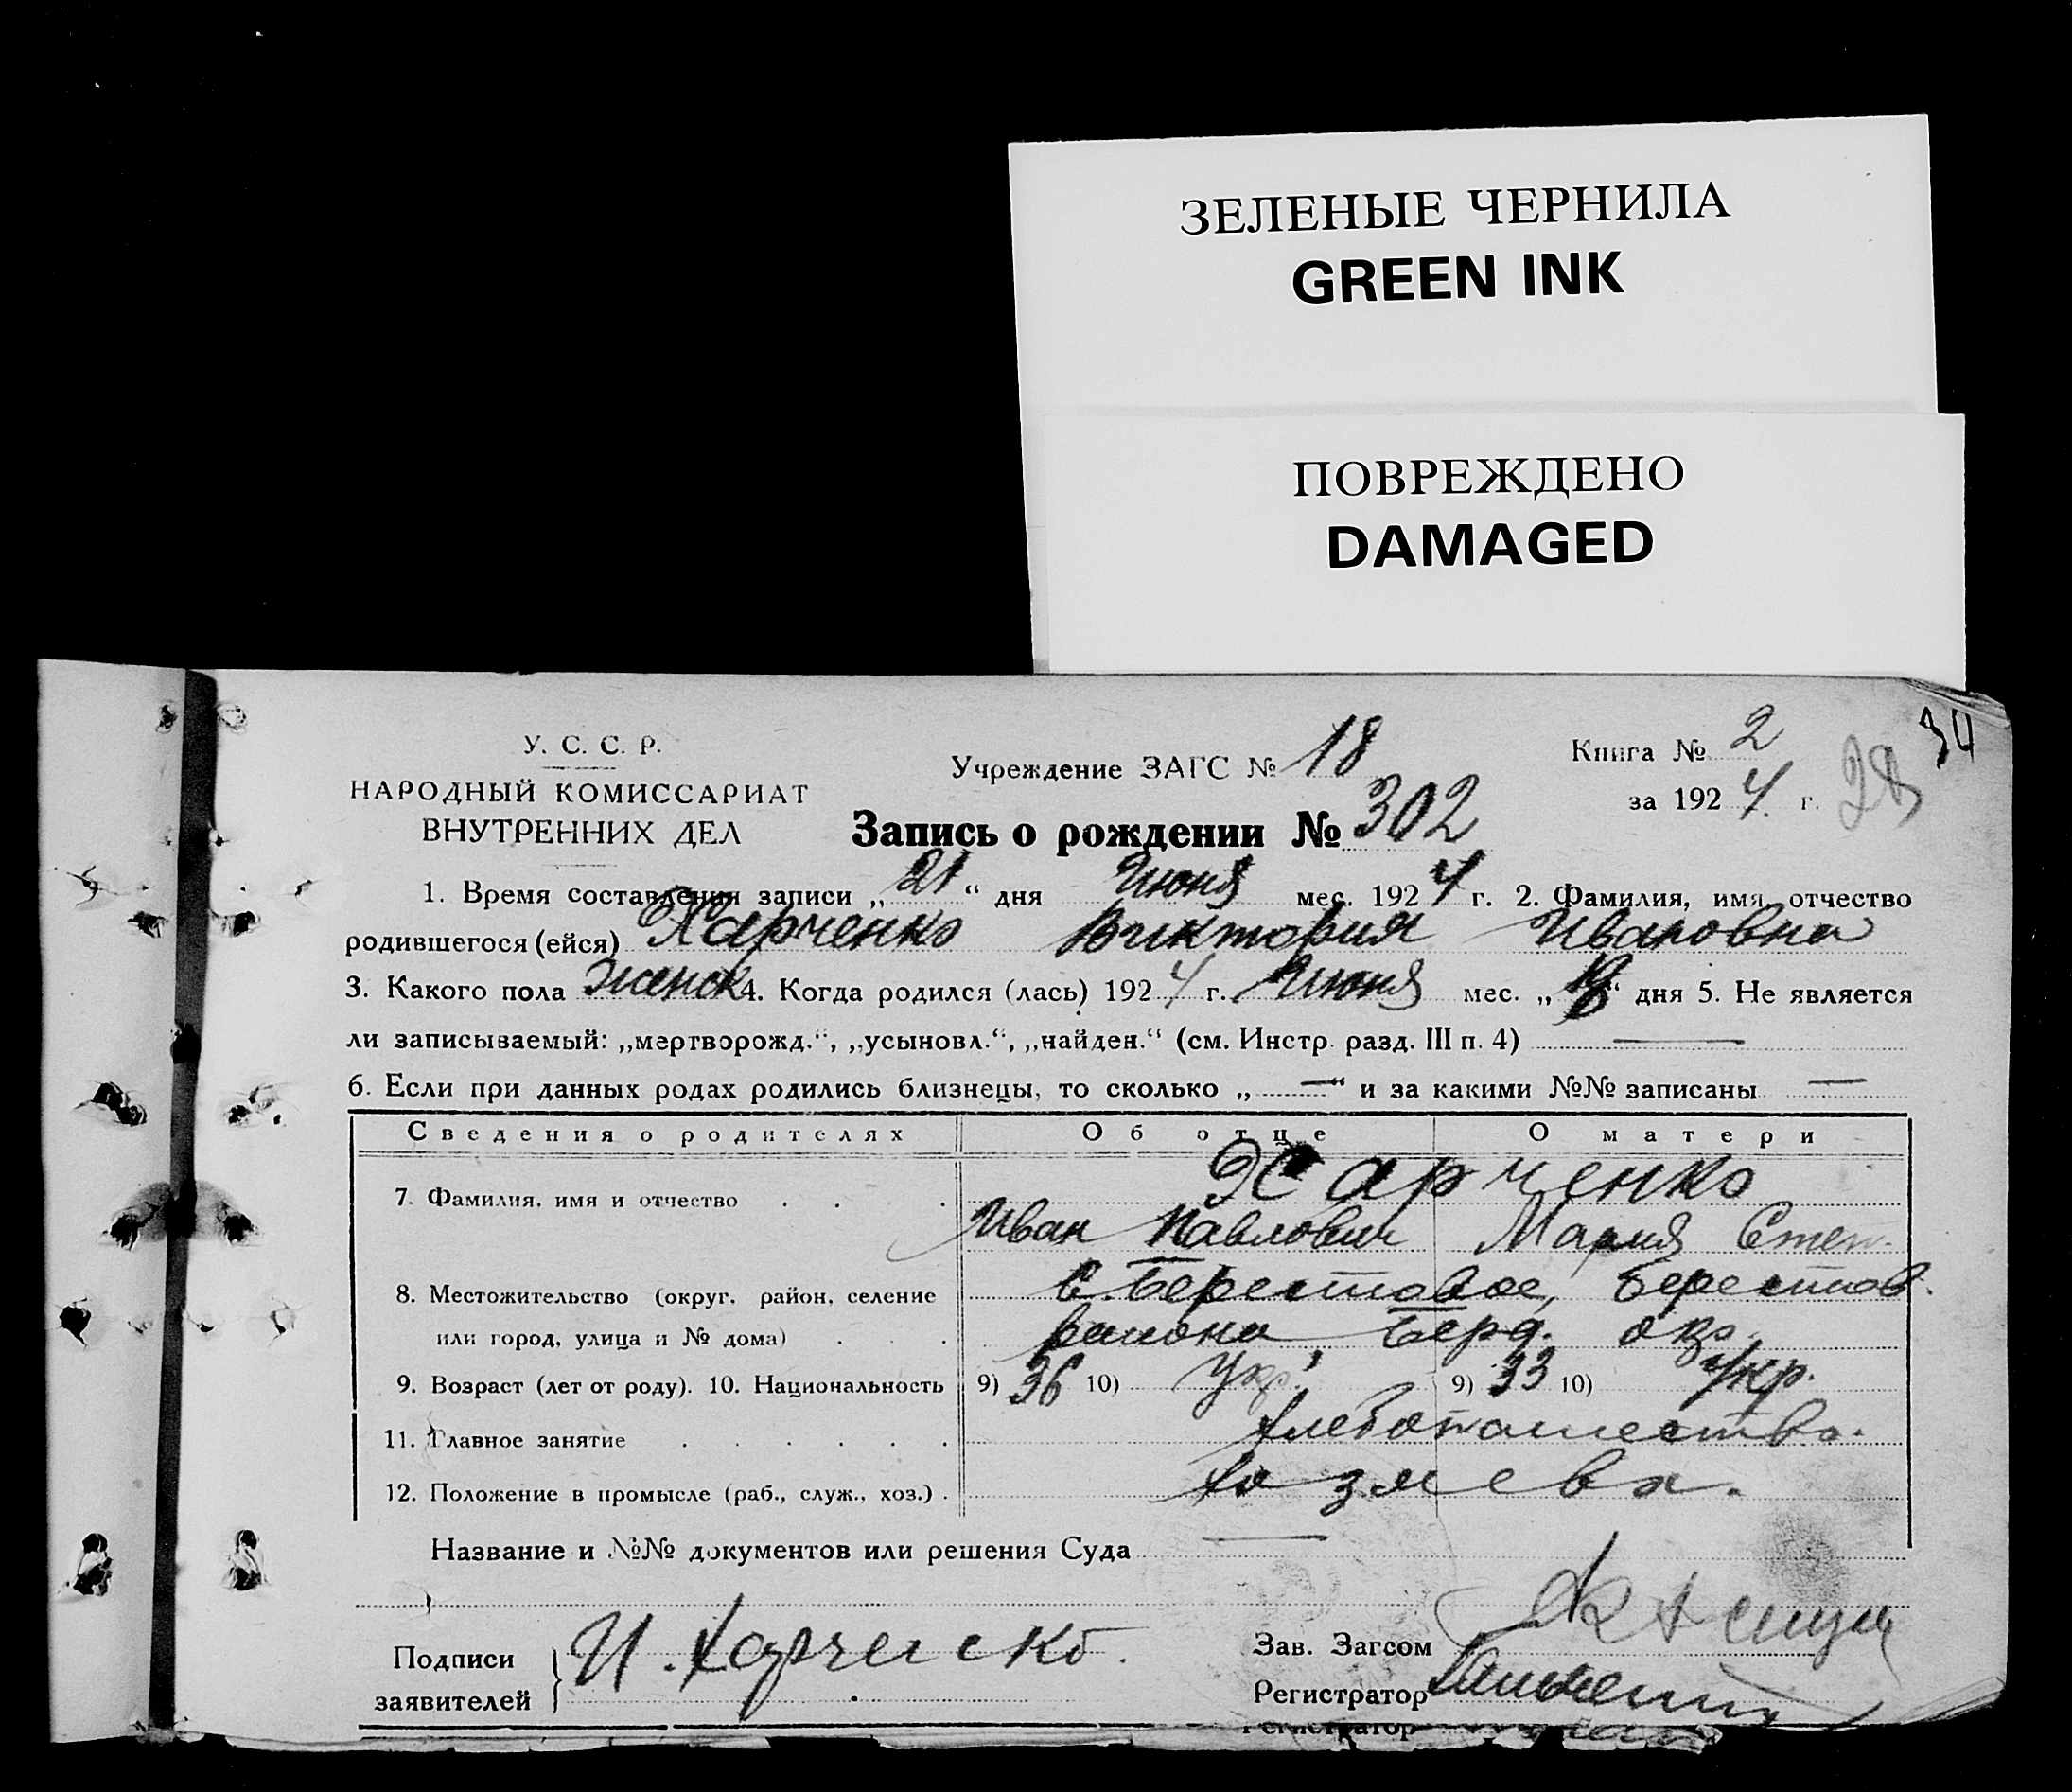 ЗЕЛЕНЫЕ ЧЕРНИЛА
GREEN INK
ПОВРЕЖДЕНО
DAMAGED
34
28
У. С. С. Р.
НАРОДНЫЙ КОМИССАРИАТ
ВНУТРЕННИХ ДЕЛ
Учреждение ЗАГС № 18
Книга № 2
за 1924 г.
Запись о рождении № 302
1. Время составления записи „21“ дня Июня мес. 1924 г. 2. Фамилия, имя, отчество
родившегося (ейся) Харченко Виктория Ивановна
3. Какого пола женск 4. Когда родился (лась) 1924 г. Июня мес. „ “ дня 5. Не является
ли записываемый: „мертворожд.“, „усыновл.“, „найден.“ (см. Инстр. разд. III п. 4) —
6. Если при данных родах родились близнецы, то сколько „—“ и за какими №№ записаны —
Сведения о родителях Об отце О матери
7. Фамилия, имя и отчество . . . Харченко
Иван Павлович Мария Степ.
8. Местожительство (округ, район, селение с. Берестовое, Берестов.
или город, улица и № дома) . . . района, Берд. окр.
9. Возраст (лет от роду). 10. Национальность 9) 36 10) Укр. 9) 33 10) Укр.
11. Главное занятие . . . . . . Хлебопашество.
12. Положение в промысле (раб., служ., хоз.) . хозяева.
Название и №№ документов или решения Суда —
Подписи
заявителей } И. Харченко.
Зав. Загсом
Регистратор
Регистратор